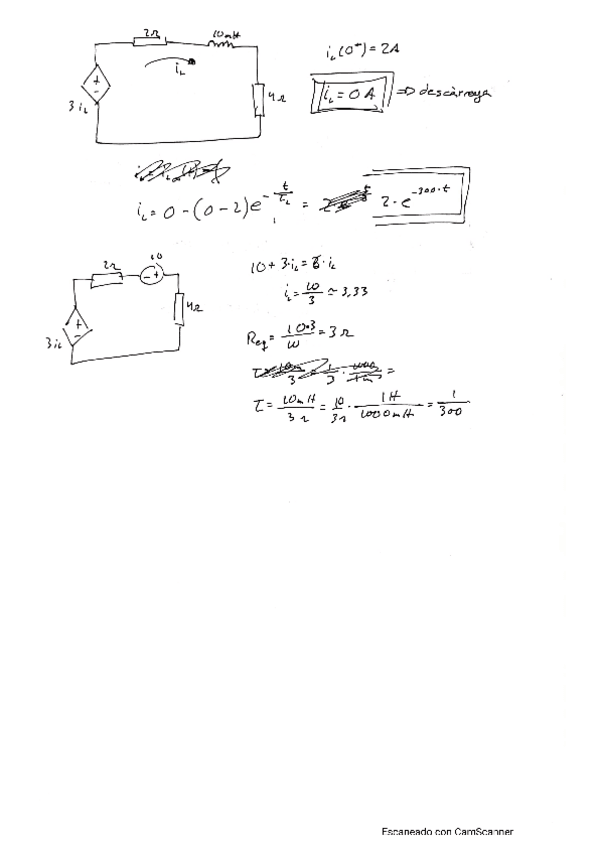 2Ω 10mH
iL
3iL
4Ω
iL(0⁺) = 2A
iL = 0 A => descarrega
iL = 0 - (0 - 2)e^(-t/τL) = 2·e^(-300·t)
2Ω 10
4Ω
3iL
10 + 3·iL = 6·iL
iL = 10/3 ≃ 3,33
Req = 10·3/10 = 3Ω
τ = 10mH/3Ω = 10/3Ω · 1H/1000mH = 1/300
Escaneado con CamScanner